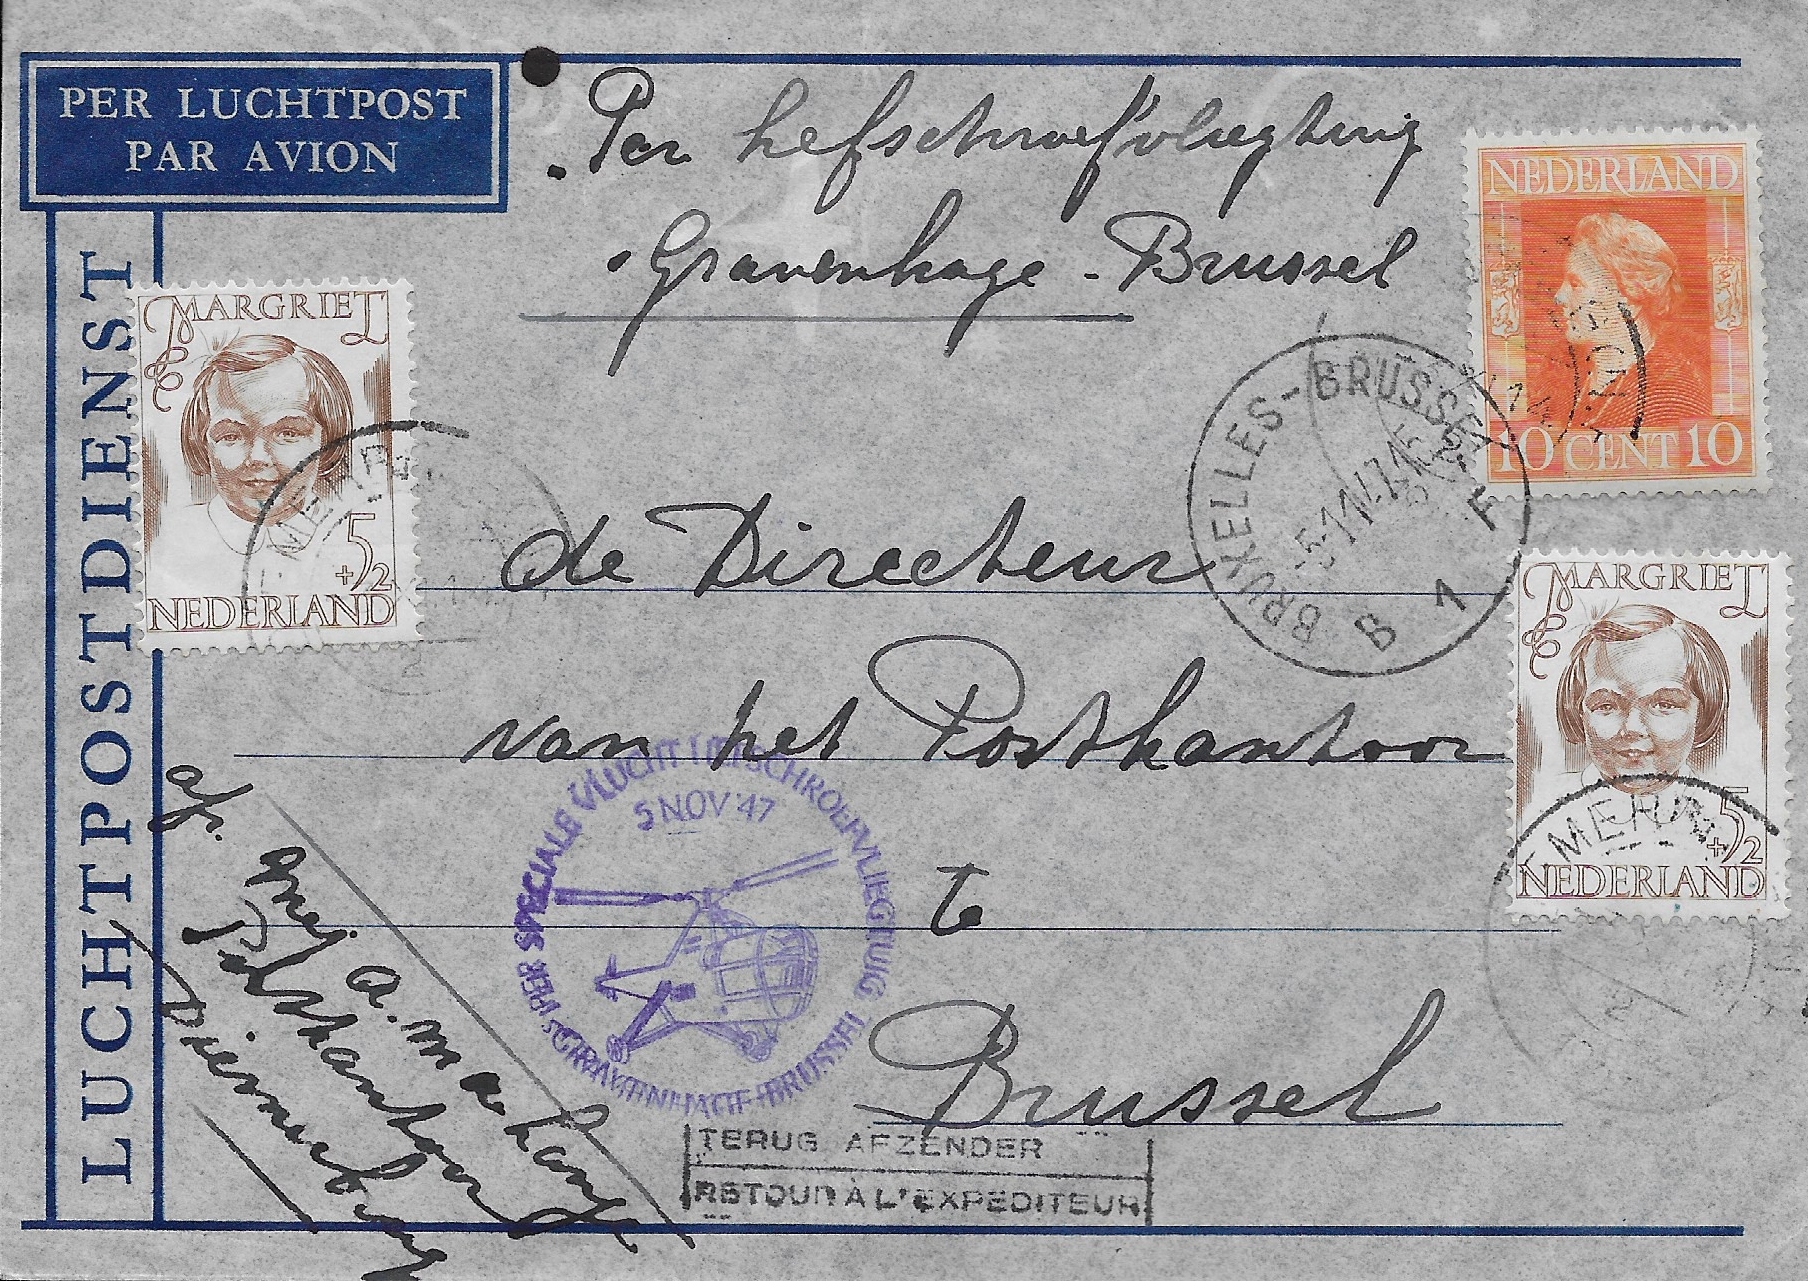 PER LUCHTPOST
PAR AVION
LUCHTPOSTDIENST
Per hefschroefvliegtuig
'Gravenhage - Brussel
NEDERLAND
10 CENT 10
MARGRIET
5
+2
NEDERLAND
BRUXELLES-BRUSSEL
-5-11-47
B 1 F
de Directeur
van het Postkantoor
te
Brussel
MARGRIET
5
+2
NEDERLAND
PER SPECIALE VLUCHT HEFSCHROEFVLIEGTUIG
5 NOV '47
'S GRAVENHAGE-BRUSSEL
af.
Postkantoor
TERUG AFZENDER
RETOUR À L'EXPEDITEUR